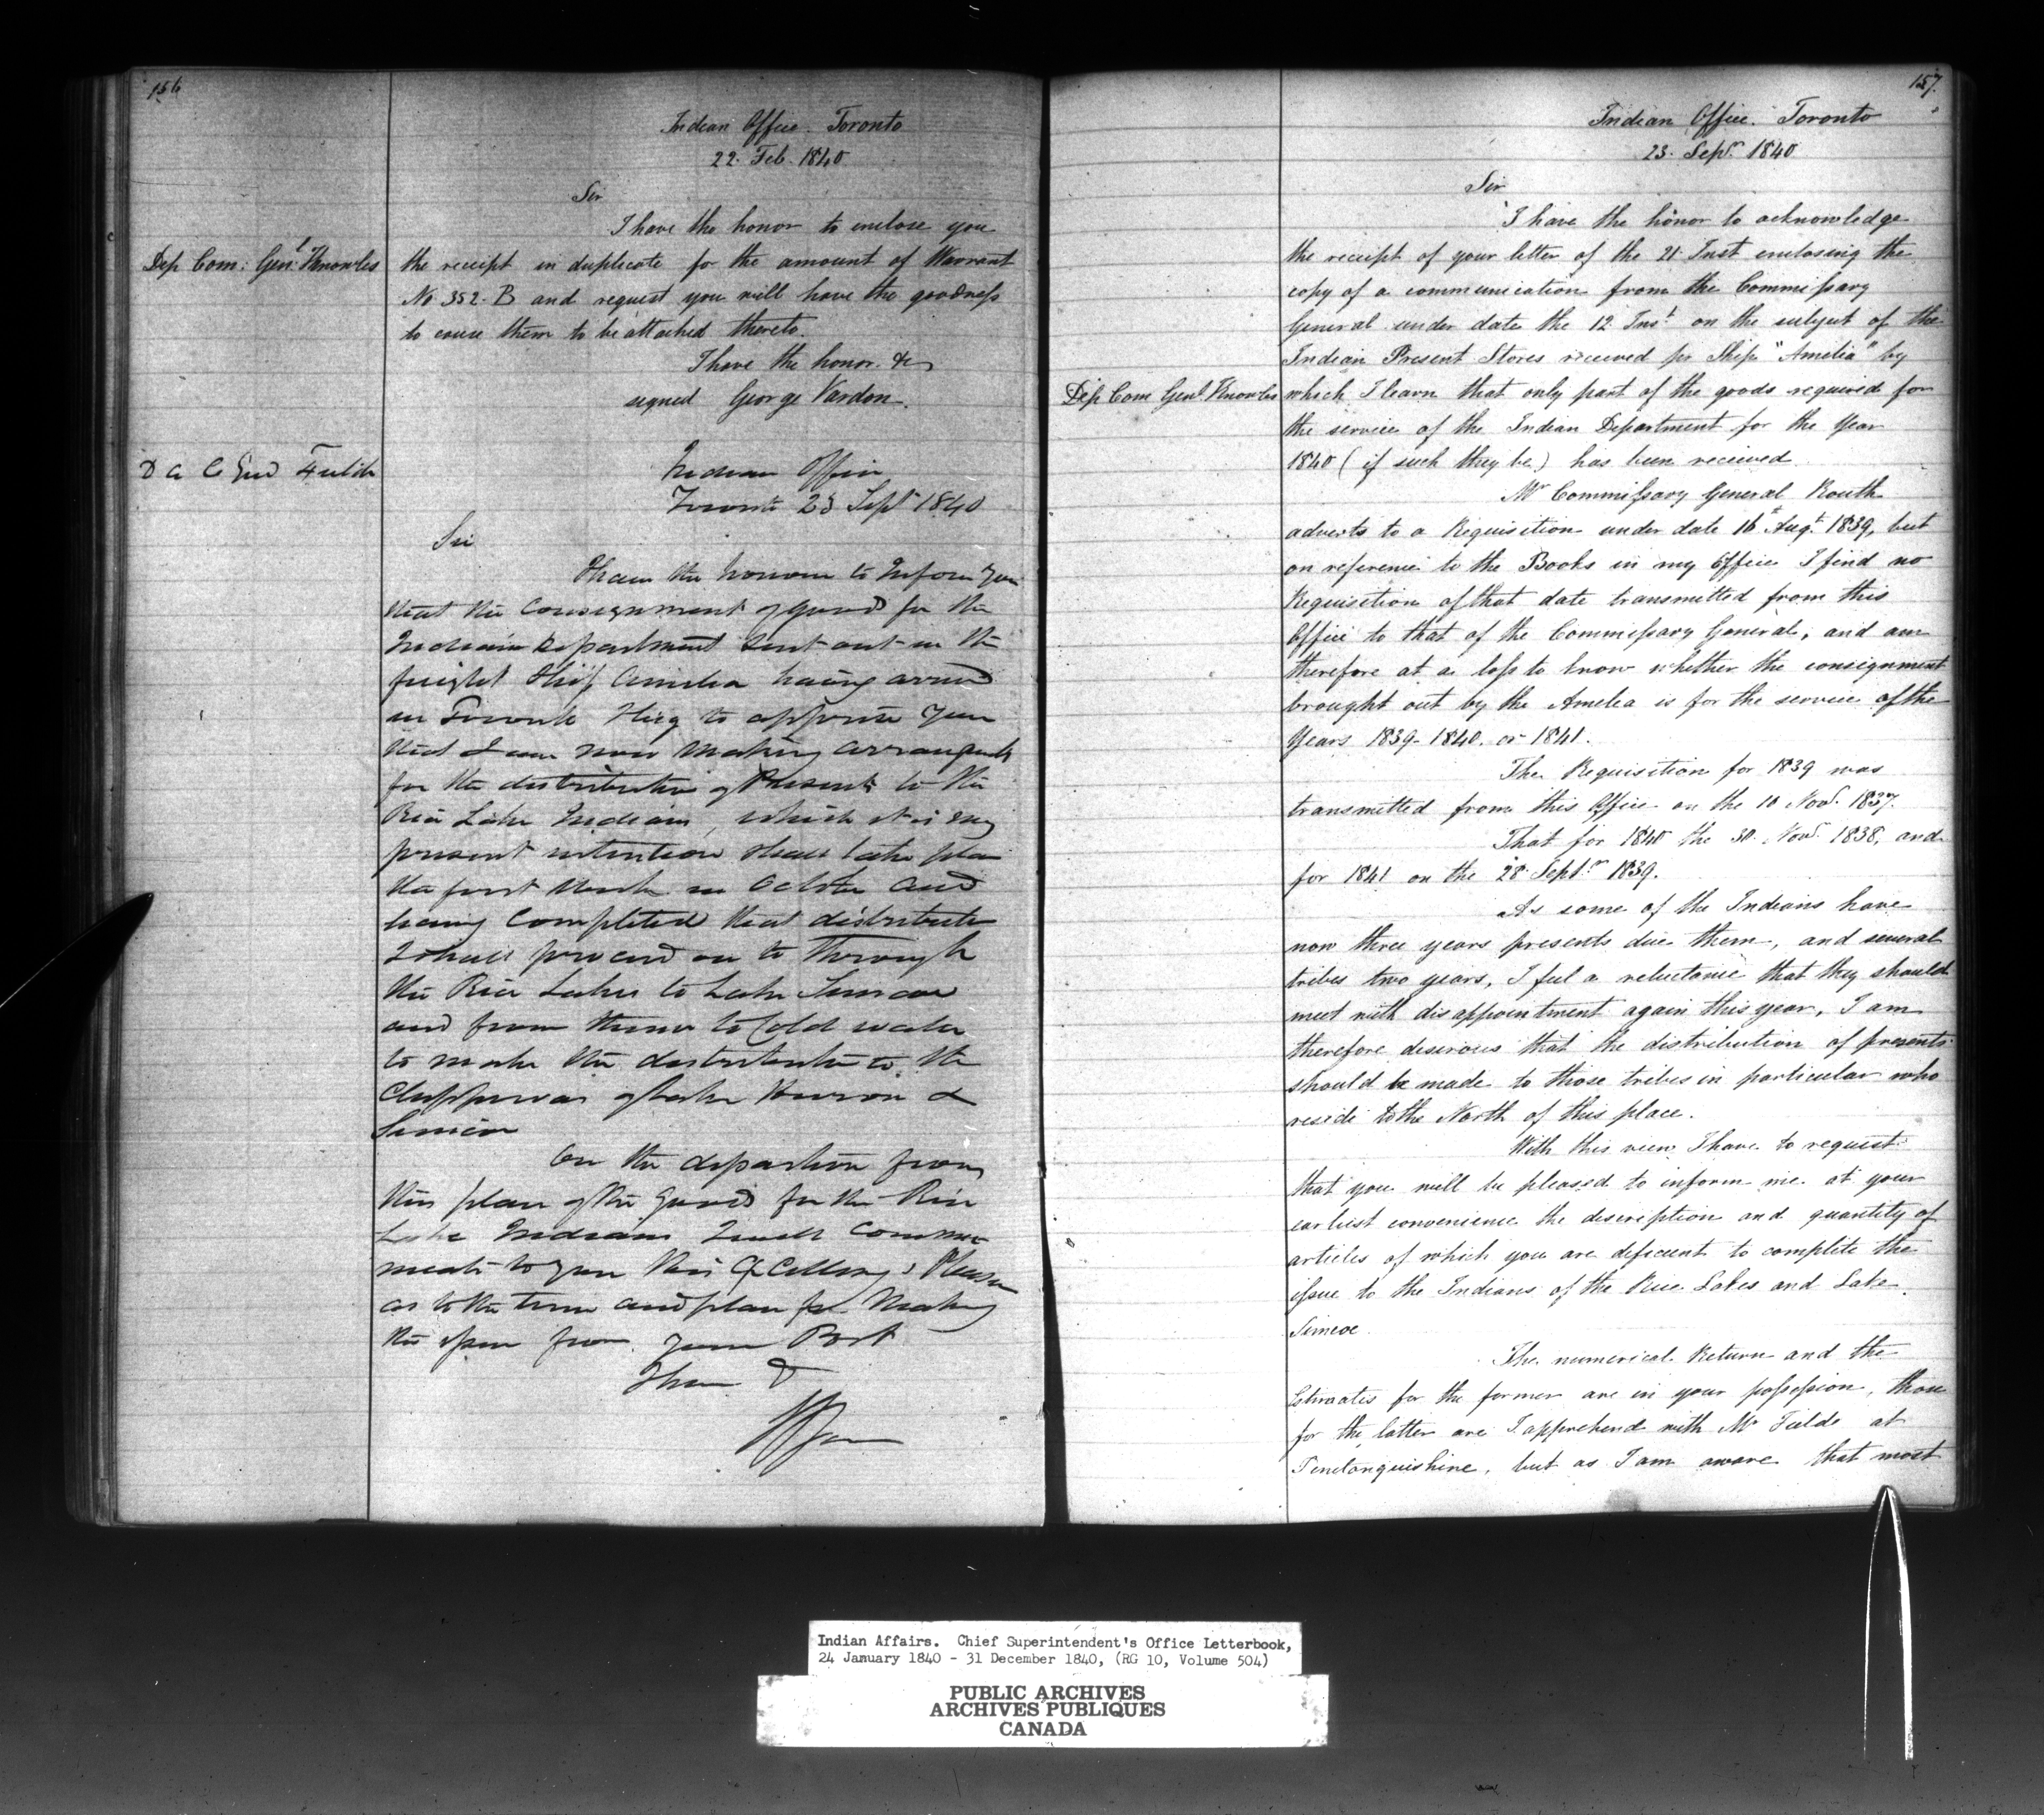 156
Indian Office. Toronto
22. Feb. 1840
Sir
I have the honor to enclose you
Dep Com: Genl Knowles
the receipt in duplicate for the amount of Warrant
No 352. B and request you will have the goodness
to cause them to be attached thereto.
I have the honor &c
signed George Vardon.
D A C Genl
Indian Office
Toronto 23 Sept 1840
Sir
I have the honour to Inform you
that the Consignment of goods for the
Indian Department sent out in the
freight Ship Amelia having arrived
in Toronto I beg to apprise you
that I am now making arrangements
for the distribution of Presents to the
Rice Lake Indians, which it is my
present intention shall take place
the first week in October and
having Completed that distribution
I shall proceed on to through
the Rice Lakes to Lake Simcoe
and from thence to Cold water
to make the distribution to the
Chippewas of Lake Huron &
Simcoe
On the departure from
this place of the goods for the Rice
Lake Indians I will commu
nicate to you His Excellency's Pleasure
as to the time and place for Making
the issue from your Post
I have &
157.
Indian Office. Toronto
23. Sepr. 1840
Sir
I have the honor to acknowledge
the receipt of your letter of the 21 Inst enclosing the
copy of a communication from the Commissary
General under date the 12 Inst on the subject of the
Indian Present Stores received pr Ship "Amelia" by
Dep Com Genl Knowles
which I learn that only part of the goods required for
the service of the Indian Department for the Year
1840 (if such they be) has been received
Mr Commissary General Routh
adverts to a Requisition under date 16th Augt. 1839, but
on reference to the Books in my Office I find no
Requisition of that date transmitted from this
Office to that of the Commissary General, and am
therefore at a loss to know whether the consignment
brought out by the Amelia is for the service of the
Years 1839- 1840. or 1841.
The Requisition for 1839 was
transmitted from this Office on the 10 Novr. 1837.
That for 1840 the 30. Novr. 1838, and
for 1841 on the 28 Septr 1839.
As some of the Indians have
now three years presents due them, and several
tribes two years, I feel a reluctance that they should
meet with disappointment again this year, I am
therefore desirous that the distribution of presents
should be made to those tribes in particular who
reside to the North of this place.
With this view I have to request
that you will be pleased to inform me at your
earliest convenience the description and quantity of
articles of which you are deficient to complete the
issue to the Indians of the Rice Lakes and Lake
Simcoe
The numerical Return and the
Estimates for the former are in your possession, those
for the latter are I apprehend with Mr Fields at
Penetanguishine, but as I am aware that most
Indian Affairs. Chief Superintendent's Office Letterbook,
24 January 1840 - 31 December 1840, (RG 10, Volume 504)
PUBLIC ARCHIVES
ARCHIVES PUBLIQUES
CANADA